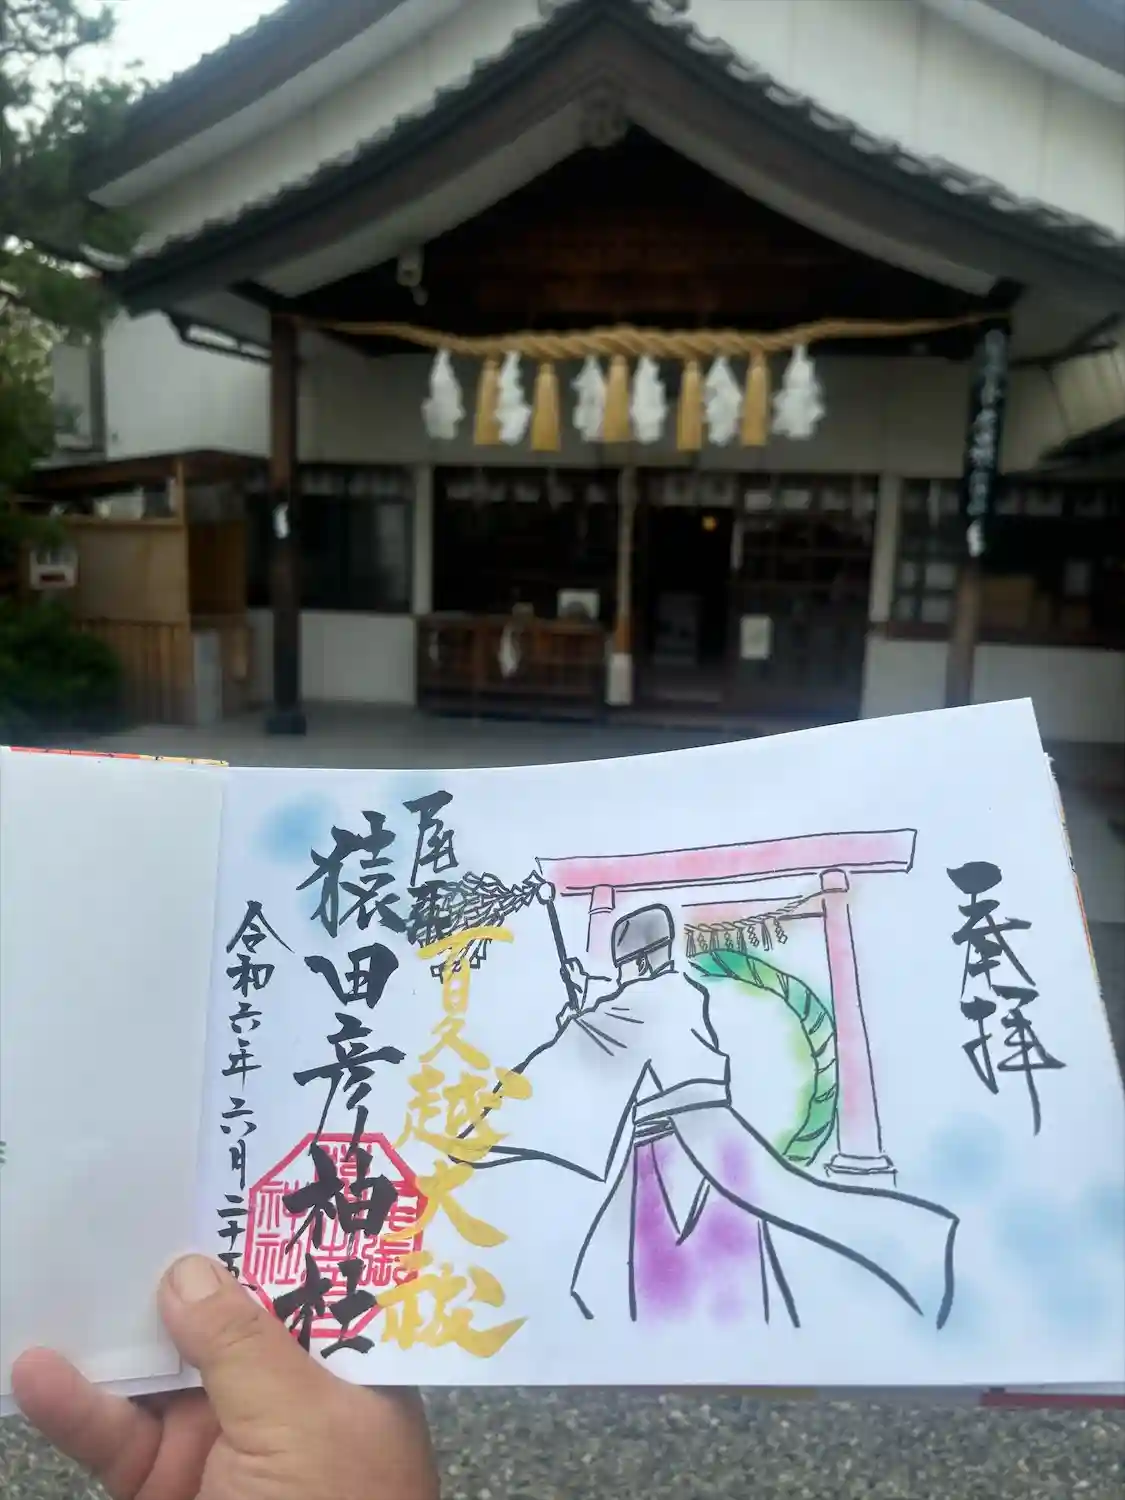 奉拝
夏越大祓
尾張
猿田彦神社
令和六年六月二十五